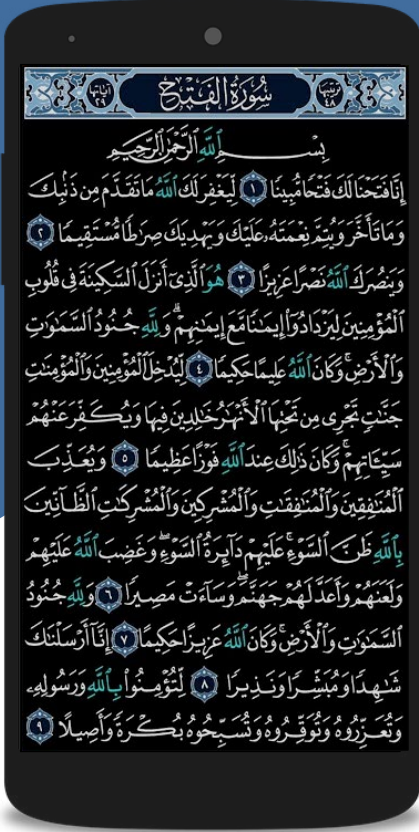 ترتيبها ٤٨ سُورَةُ الْفَتْحِ آياتها ٢٩
بِسْمِ اللَّهِ الرَّحْمَٰنِ الرَّحِيمِ
إِنَّا فَتَحْنَا لَكَ فَتْحًا مُّبِينًا ١ لِّيَغْفِرَ لَكَ اللَّهُ مَا تَقَدَّمَ مِن ذَنۢبِكَ
وَمَا تَأَخَّرَ وَيُتِمَّ نِعْمَتَهُۥ عَلَيْكَ وَيَهْدِيَكَ صِرَٰطًا مُّسْتَقِيمًا ٢
وَيَنصُرَكَ اللَّهُ نَصْرًا عَزِيزًا ٣ هُوَ الَّذِىٓ أَنزَلَ السَّكِينَةَ فِى قُلُوبِ
الْمُؤْمِنِينَ لِيَزْدَادُوٓا۟ إِيمَٰنًا مَّعَ إِيمَٰنِهِمْ ۗ وَلِلَّهِ جُنُودُ السَّمَٰوَٰتِ
وَالْأَرْضِ ۚ وَكَانَ اللَّهُ عَلِيمًا حَكِيمًا ٤ لِّيُدْخِلَ الْمُؤْمِنِينَ وَالْمُؤْمِنَٰتِ
جَنَّٰتٍ تَجْرِى مِن تَحْتِهَا الْأَنْهَٰرُ خَٰلِدِينَ فِيهَا وَيُكَفِّرَ عَنْهُمْ
سَيِّـَٔاتِهِمْ ۚ وَكَانَ ذَٰلِكَ عِندَ اللَّهِ فَوْزًا عَظِيمًا ٥ وَيُعَذِّبَ
الْمُنَٰفِقِينَ وَالْمُنَٰفِقَٰتِ وَالْمُشْرِكِينَ وَالْمُشْرِكَٰتِ الظَّآنِّينَ
بِاللَّهِ ظَنَّ السَّوْءِ ۚ عَلَيْهِمْ دَآئِرَةُ السَّوْءِ ۖ وَغَضِبَ اللَّهُ عَلَيْهِمْ
وَلَعَنَهُمْ وَأَعَدَّ لَهُمْ جَهَنَّمَ ۖ وَسَآءَتْ مَصِيرًا ٦ وَلِلَّهِ جُنُودُ
السَّمَٰوَٰتِ وَالْأَرْضِ ۚ وَكَانَ اللَّهُ عَزِيزًا حَكِيمًا ٧ إِنَّآ أَرْسَلْنَٰكَ
شَٰهِدًا وَمُبَشِّرًا وَنَذِيرًا ٨ لِّتُؤْمِنُوا۟ بِاللَّهِ وَرَسُولِهِۦ
وَتُعَزِّرُوهُ وَتُوَقِّرُوهُ وَتُسَبِّحُوهُ بُكْرَةً وَأَصِيلًا ٩